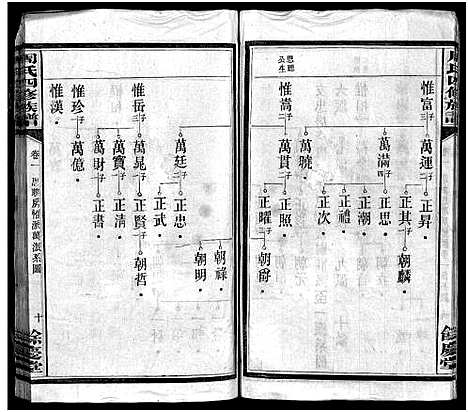 周氏四修族譜
惟富二子
萬運一子
正昇
萬滿四子
正其一子
朝麟
正思
正潮
正禮
正次
思聰公生
惟嵩二子
萬曉
萬貫二子
正照
正曜一子
朝爵
餘慶堂
周氏四修族譜
卷一
十
萬廷二子
正忠二子
朝祿
朝明
正武
惟岳三子
萬晃一子
正賢一子
朝哲
萬寶一子
正清
萬財一子
正書
惟珍一子
萬億
惟漢
餘慶堂